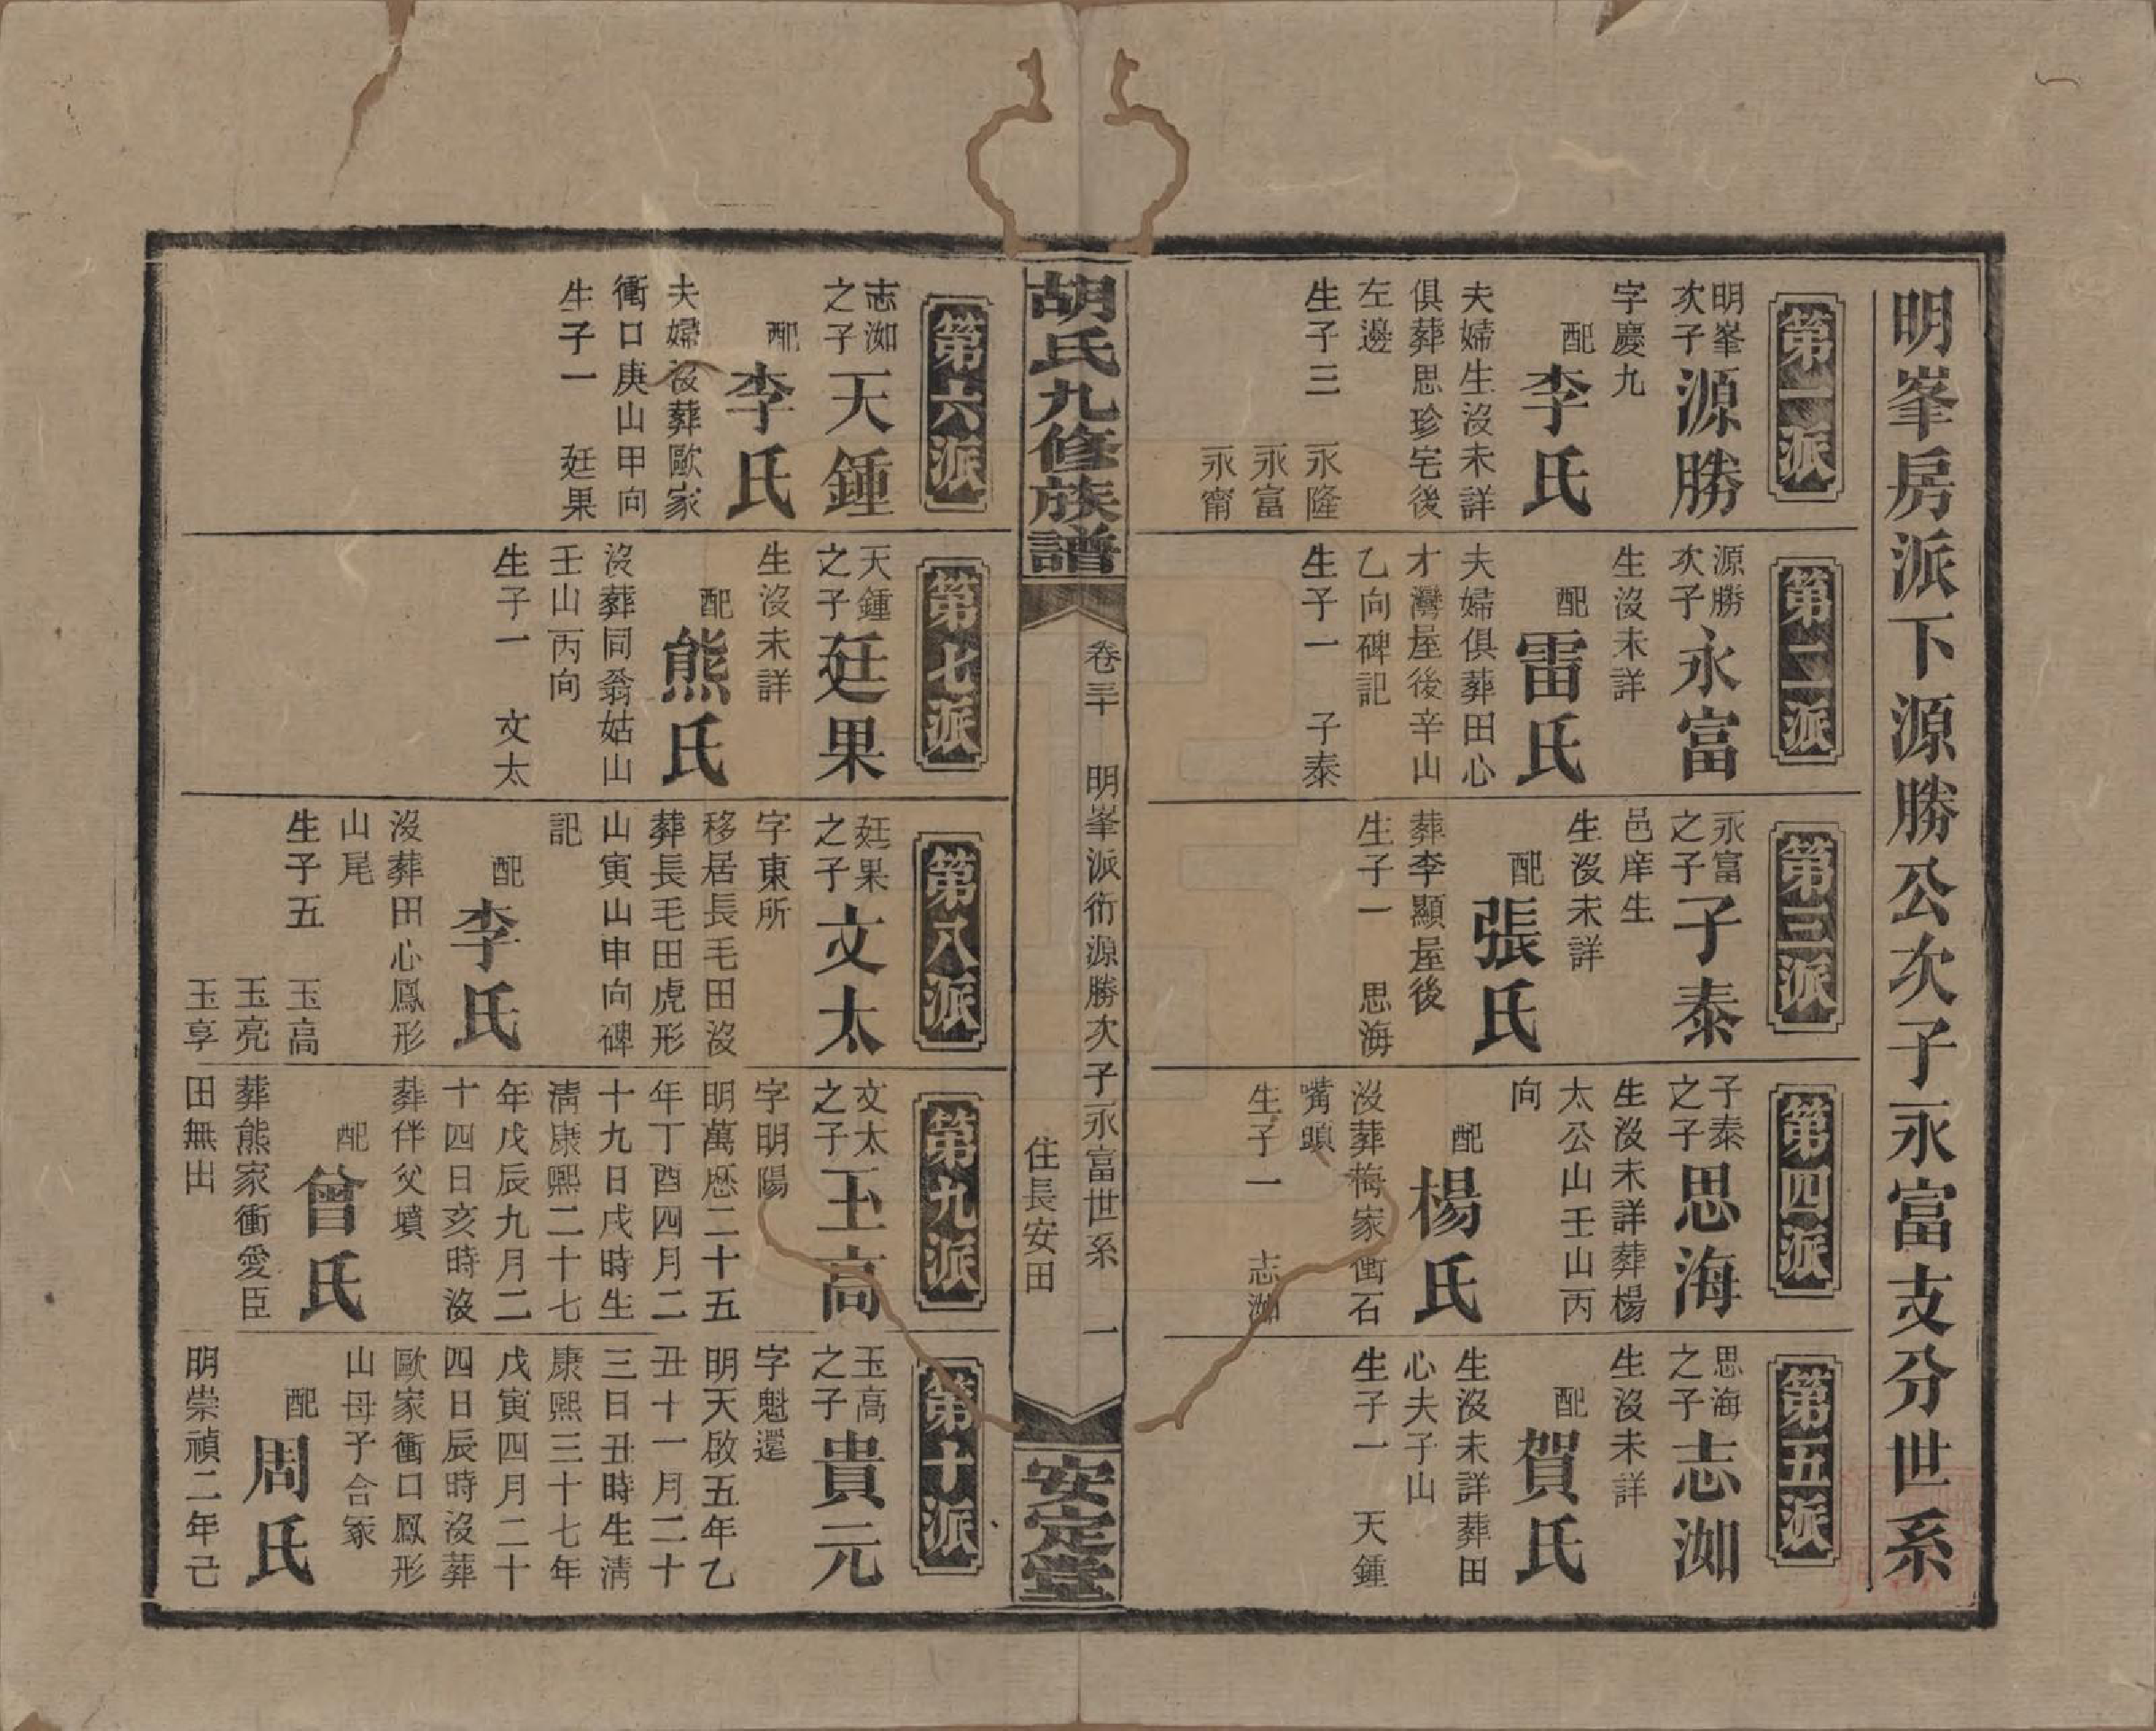 明峯房派下源勝公次子永富支分世系
第一派
明峯
次子
源勝
字慶九
配
李氏
夫婦生沒未詳
俱葬思珍宅後
左邊
生子三 永隆
永富
永甯
第二派
源勝
次子
永富
生沒未詳
配
雷氏
夫婦俱葬田心
才灣屋後辛山
乙向碑記
生子一 子泰
第三派
永富
之子
子泰
邑庠生
生沒未詳
配
張氏
葬李顯屋後
生子一 思海
第四派
子泰
之子
思海
生沒未詳葬楊
太公山壬山丙
向
配
楊氏
沒葬梅家衝石
嘴頭
生子一 志洳
第五派
思海
之子
志洳
生沒未詳
配
賀氏
生沒未詳葬田
心夫子山
生子一 天鍾
胡氏九修族譜
卷三十 明峯派衍源勝次子永富世系 一
住長安田
安定堂
第六派
志洳
之子
天鍾
配
李氏
夫婦沒葬歐家
衝口庚山甲向
生子一 廷果
第七派
天鍾
之子
廷果
生沒未詳
配
熊氏
沒葬同翁姑山
壬山丙向
生子一 文太
第八派
廷果
之子
文太
字東所
移居長毛田沒
葬長毛田虎形
山寅山申向碑
記
配
李氏
沒葬田心鳳形
山尾
生子五 玉高
玉亮
玉享
第九派
文太
之子
玉高
字明陽
明萬歷二十五
年丁酉四月二
十九日戌時生
淸康熙二十七
年戊辰九月二
十四日亥時沒
葬伴父墳
配
曾氏
葬熊家衝愛臣
田無出
第十派
玉高
之子
貴元
字魁還
明天啟五年乙
丑十一月二十
三日丑時生淸
康熙三十七年
戊寅四月二十
四日辰時沒葬
歐家衝口鳳形
山母子合冢
配
周氏
明崇禎二年己